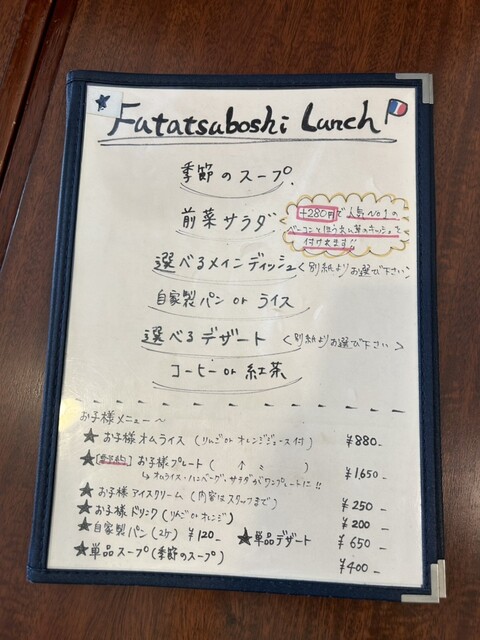 Futatsuboshi Lunch
季節のスープ
前菜サラダ
+280円で人気No1の
ベーコンとほうれん草のキッシュを
付けれます!!
選べるメインディッシュ <別紙よりお選び下さい>
自家製パン or ライス
選べるデザート <別紙よりお選び下さい>
コーヒー or 紅茶
お子様メニュー〜
★お子様オムライス (りんご or オレンジジュース付) ¥880-
★[要予約] お子様プレート ( ↑ 〃 ) ¥1,650-
↳オムライス・ハンバーグ、サラダがワンプレートに!!
★お子様アイスクリーム (内容はスタッフまで) ¥250-
★お子様ドリンク (りんご or オレンジ) ¥200-
★自家製パン (2ケ) ¥120- ★単品デザート ¥650-
★単品スープ (季節のスープ) ¥400-